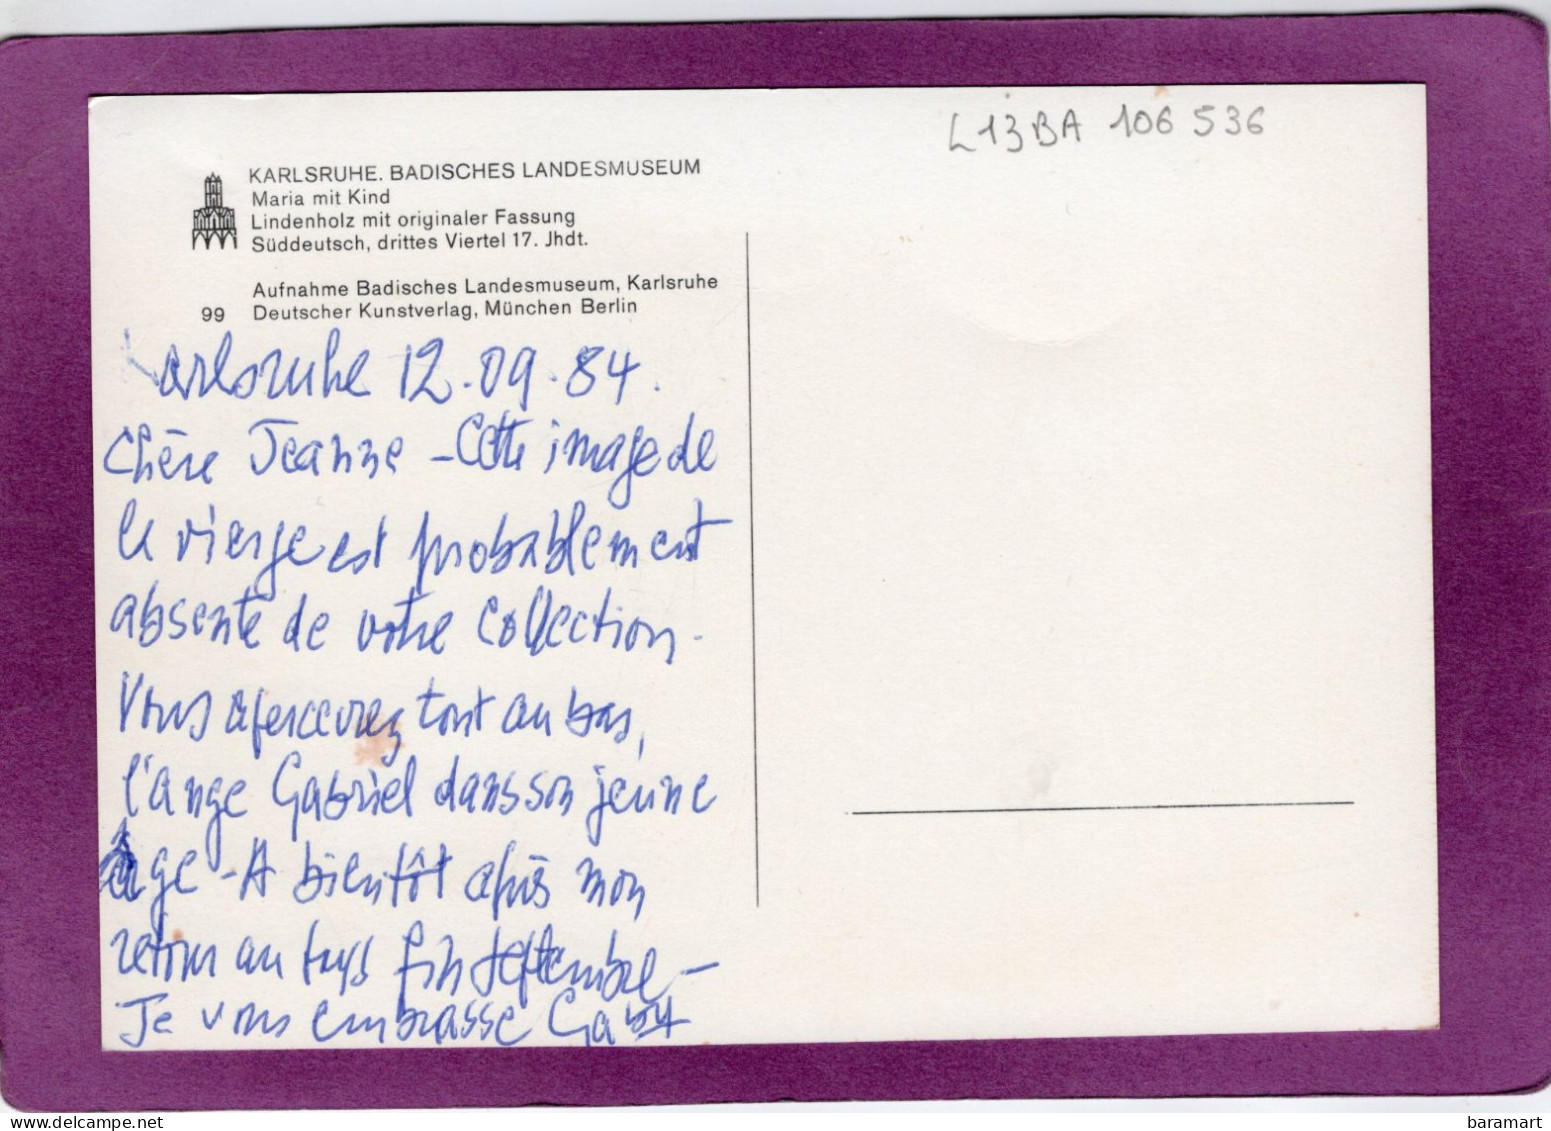 L13BA 106 536
KARLSRUHE. BADISCHES LANDESMUSEUM
Maria mit Kind
Lindenholz mit originaler Fassung
Süddeutsch, drittes Viertel 17. Jhdt.
Aufnahme Badisches Landesmuseum, Karlsruhe
99 Deutscher Kunstverlag, München Berlin
Karlsruhe 12.09.84.
Chère Jeanne - Cette image de
la vierge est probablement
absente de votre collection.
Vous apercevrez tout au bas,
l'ange Gabriel dans son jeune
âge - A bientôt après mon
retour au pays fin septembre -
Je vous embrasse Gaby
baramart